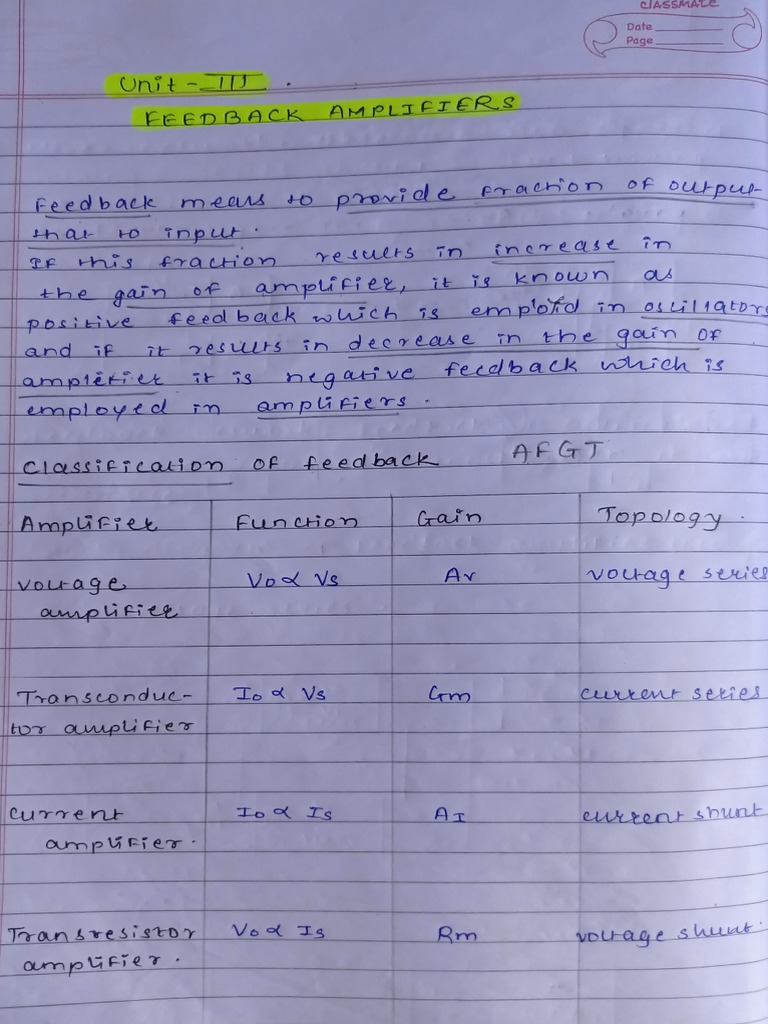 CLASSMATE
Date
Page
Unit - III .
FEEDBACK AMPLIFIERS
Feedback means to provide fraction of output
that to input.
If this fraction results in increase in
the gain of amplifier, it is known as
positive feedback which is employd in oscillators
and if it results in decrease in the gain of
amplifier it is negative feedback which is
employed in amplifiers.
Classification of feedback AFGT
Amplifier Function Gain Topology.
voltage Vo∝ Vs Av voltage series
amplifier
Transconduc- Io ∝ Vs Gm current series
tor amplifier
current Io ∝ Is AI current shunt
amplifier.
Transresistor Vo∝ Is Rm voltage shunt.
amplifier.